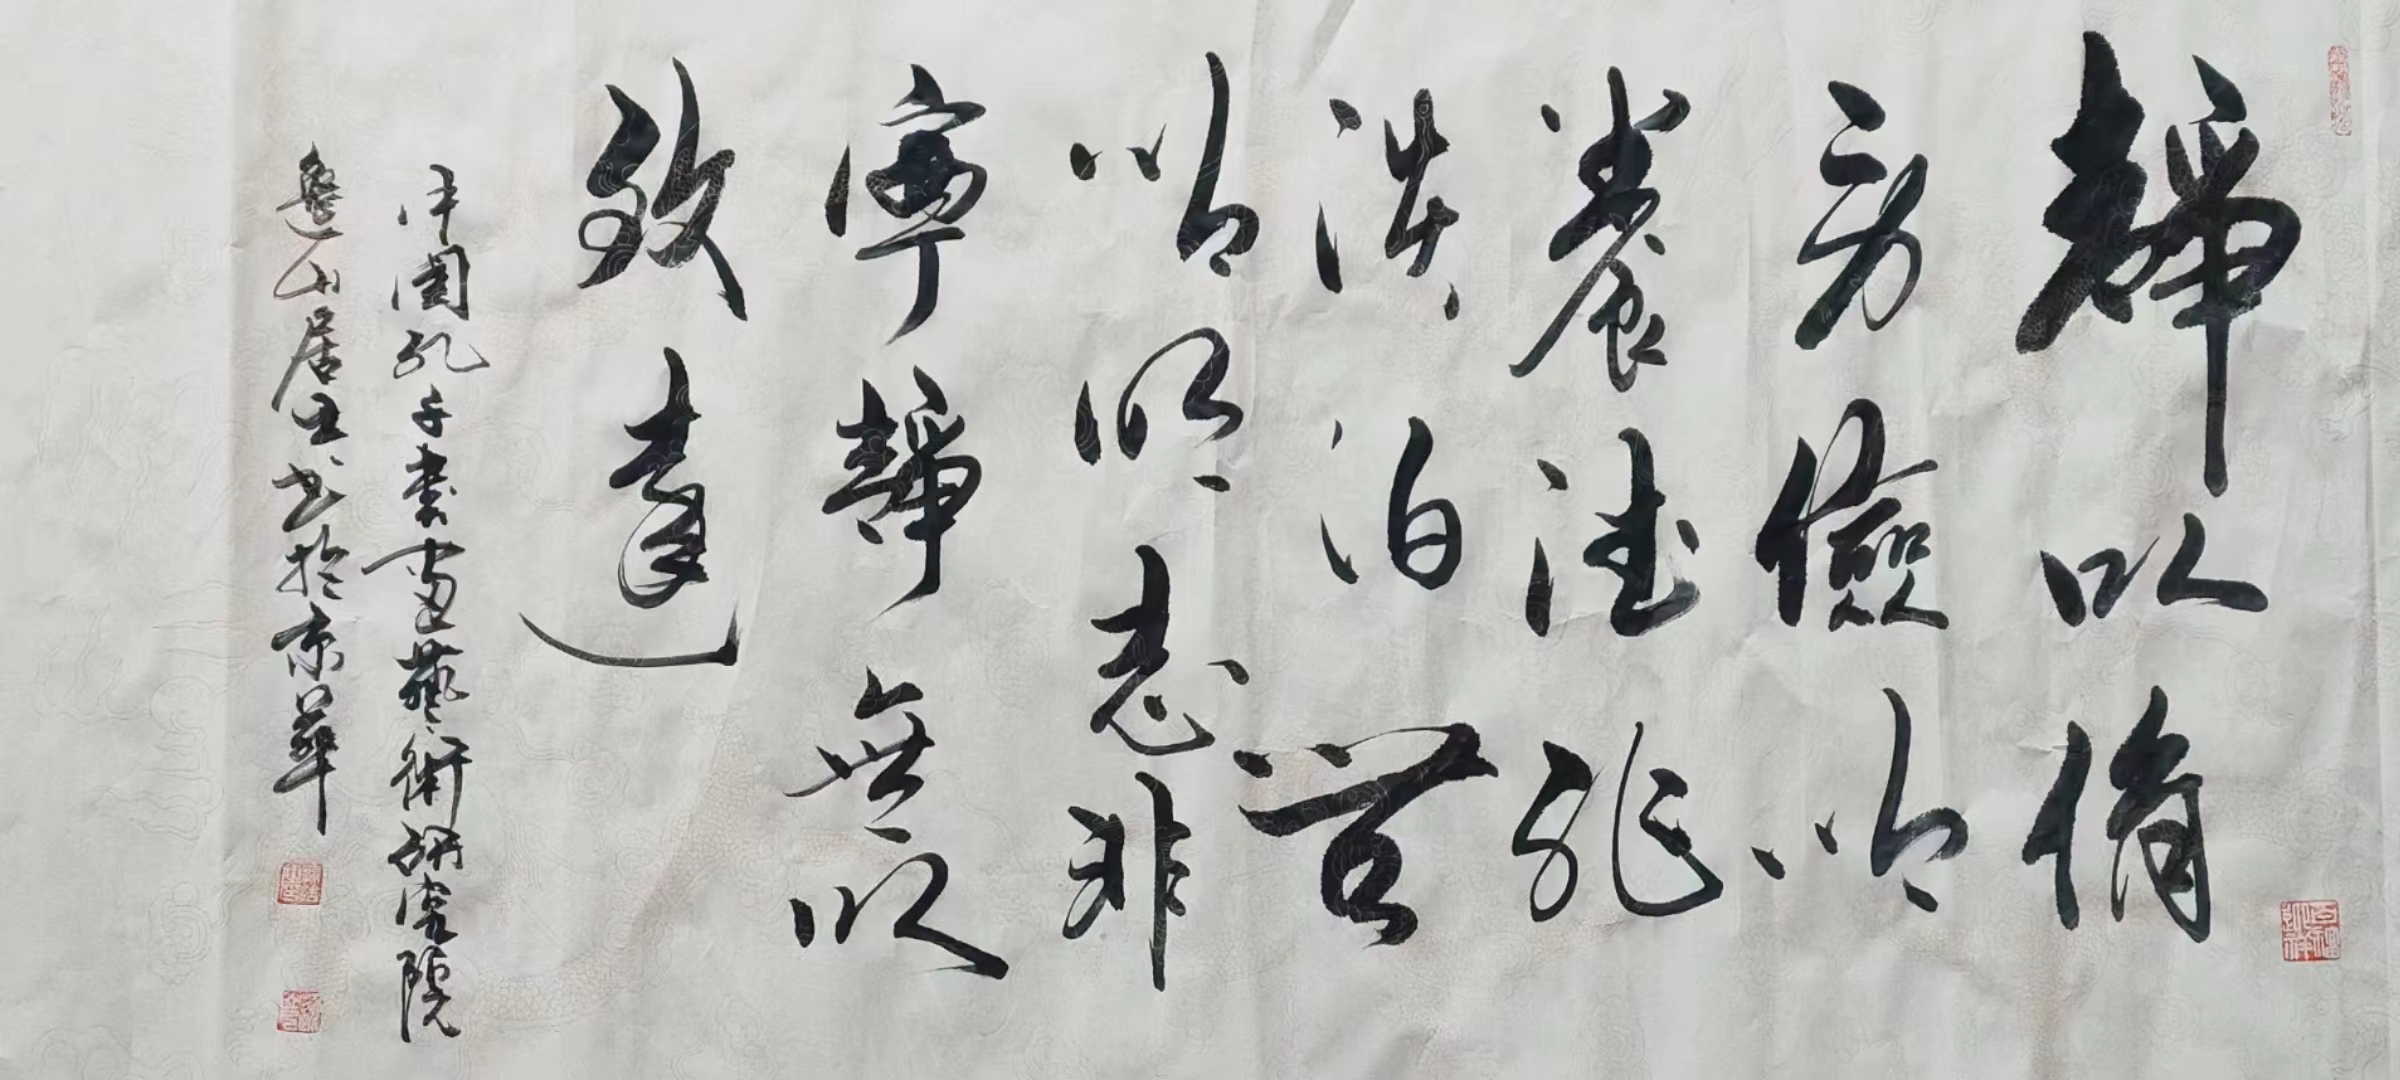 靜以脩
身儉以
養德非
淡泊無
以明志非
寧靜無以
致遠
中國孔子書畫藝術研究院
逸山居士書於京華